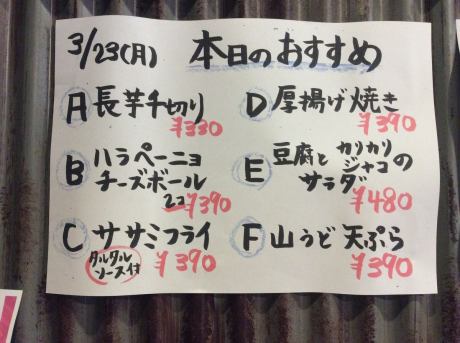 3/23(月) 本日のおすすめ
A 長芋千切り
¥330
B ハラペーニョ
チーズボール
2コ ¥390
C ササミフライ
タルタル
ソース付 ¥390
D 厚揚げ焼き
¥390
E 豆腐と カリカリ
ジャコの
サラダ
¥480
F 山うど 天ぷら
¥390